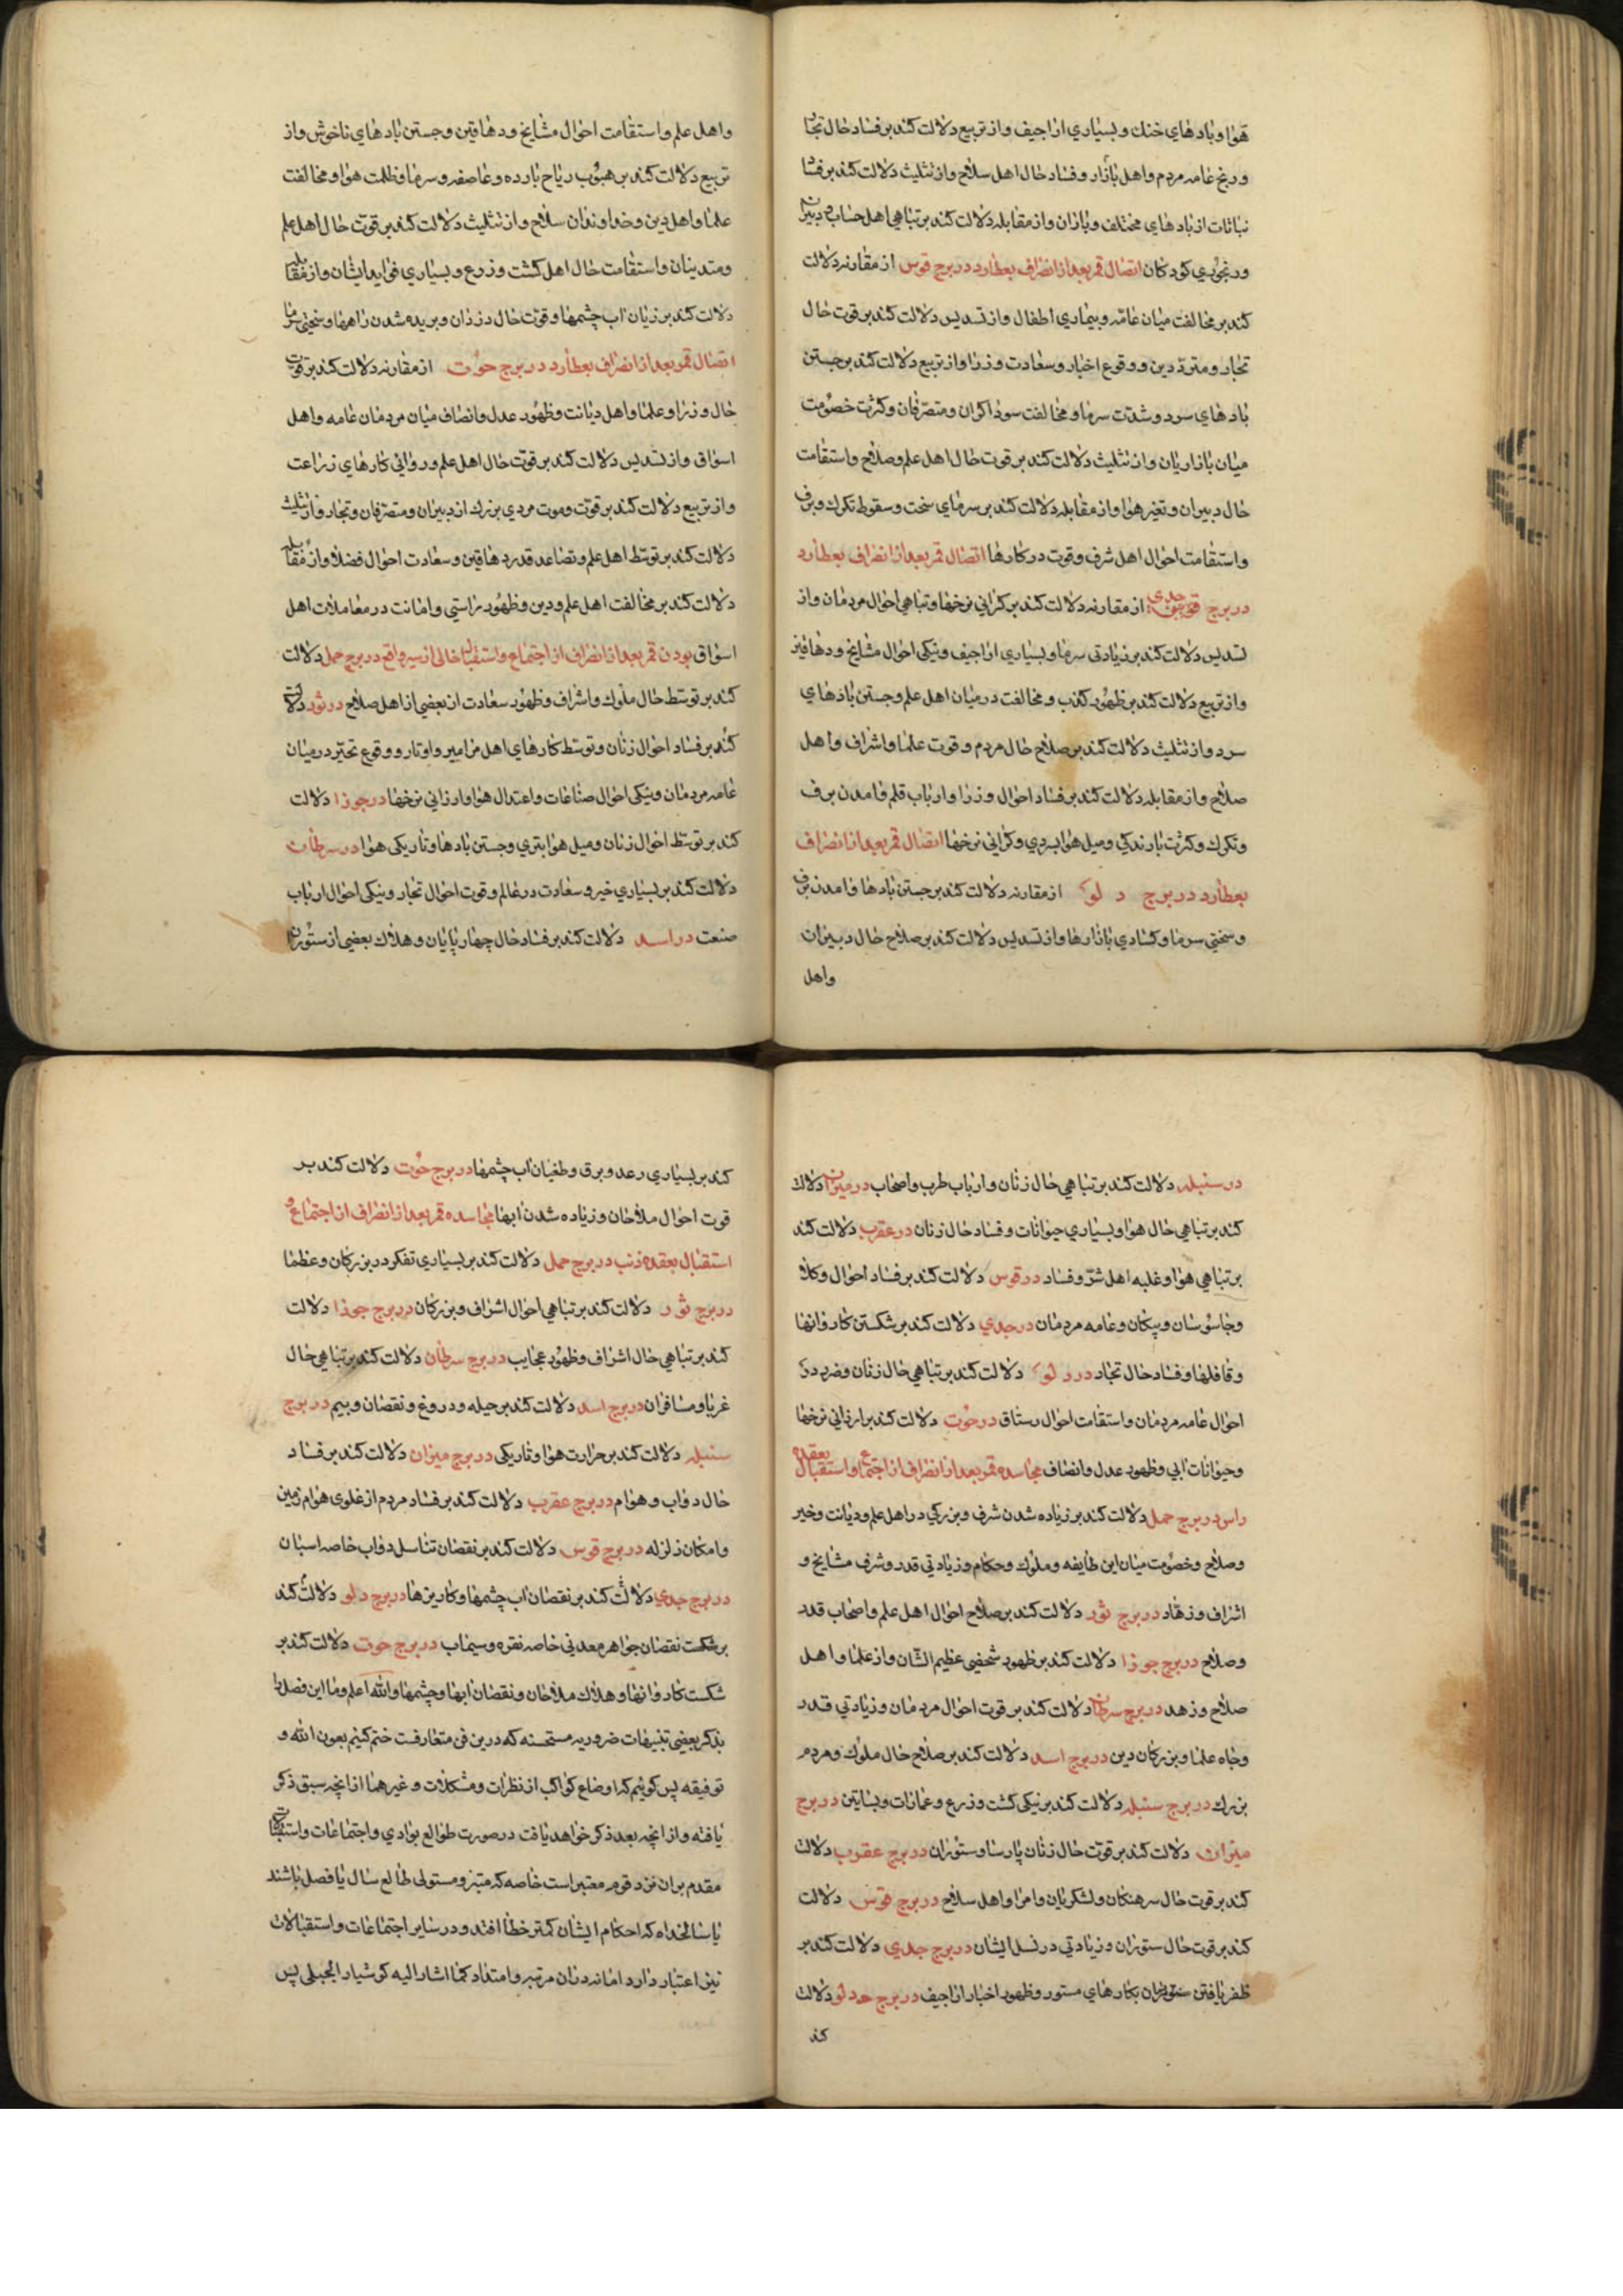 هوا و بادهای خنك و بسیاری اراجیف و از تربیع دلالت کند بر فساد حال تجار
و رنج عامه مردم و اهل بازار و فساد حال اهل سلاح و از تثلیث دلالت کند بر فسا
نباتات از بادهای مختلف و باران و از مقابله دلالت کند بر تباهی اهل حساب و دبیران
و رنجوری کودکان اتصال قمر بعد از انصراف بعطارد در برج قوس از مقارنه دلالت
کند بر مخالفت میان عامه و بیماری اطفال و از تسدیس دلالت کند بر قوت حال
تجار و مترددین و وقوع اخبار و سعادت وزرا و از تربیع دلالت کند بر جستن
بادهای سرد و شدت سرما و مخالفت سوداکران و متصرفان و کثرت خصومت
میان بازاریان و از تثلیث دلالت کند بر قوت حال اهل علم و صلاح و استقامت
حال دبیران و تغیر هوا و از مقابله دلالت کند بر سرمای سخت و سقوط تکرك و برف
و استقامت احوال اهل شرف و قوت در کارها اتصال قمر بعد از انصراف بعطارد
در برج جدی از مقارنه دلالت کند بر کرانی نرخها و تباهی احوال مردمان و از
تسدیس دلالت کند بر زیادتی سرما و بسیاری اراجیف و نیکی احوال مشایخ و دهاقین
و از تربیع دلالت کند بر ظهور کذب و مخالفت در میان اهل علم و جستن بادهای
سرد و از تثلیث دلالت کند بر صلاح حال مردم و قوت علما و اشراف و اهل
صلاح و از مقابله دلالت کند بر فساد احوال وزرا و ارباب قلم و امدن برف
و تکرك و کثرت بارندکی و میل هوا بسردی و کرانی نرخها اتصال قمر بعد از انصراف
بعطارد در برج دلو از مقارنه دلالت کند بر جستن بادها و امدن برف
و سختی سرما و کشادی بازارها و از تسدیس دلالت کند بر صلاح حال دبیران
واهل
و اهل علم و استقامت احوال مشایخ و دهاقین و جستن بادهای ناخوش و از
تربیع دلالت کند بر هبوب ریاح بارده و عاصفه و سرما و ظلمت هوا و مخالفت
علما و اهل دین و خداوندان سلاح و از تثلیث دلالت کند بر قوت حال اهل علم
و متدینان و استقامت حال اهل کشت و زرع و بسیاری فواید ایشان و از مقابله
دلالت کند بر زیان اب چشمها و قوت حال دزدان و بریده شدن راهها و سختی سرما
اتصال قمر بعد از انصراف بعطارد در برج حوت از مقارنه دلالت کند بر قوت
حال وزرا و علما و اهل دیانت و ظهور عدل و انصاف میان مردمان عامه و اهل
اسواق و از تسدیس دلالت کند بر قوت حال اهل علم و روائی کارهای زراعت
و از تربیع دلالت کند بر قوت و موت مردی بزرك از دبیران و متصرفان و تجار و از تثلیث
دلالت کند بر توسط اهل علم و تصاعد قدر دهاقین و سعادت احوال فضلا و از مقابله
دلالت کند بر مخالفت اهل علم و دین و ظهور راستی و امانت در معاملات اهل
اسواق بودن قمر بعد از انصراف از اجتماع و استقبال خالی از سیر واقع در برج حمل دلالت
کند بر توسط حال ملوك و اشراف و ظهور سعادت از بعضی از اهل صلاح در ثور دلالت
کند بر فساد احوال زنان و توسط کارهای اهل مزامیر و اوتار و وقوع تحیر در میان
عامه مردمان و نیکی احوال صناعات و اعتدال هوا و ارزانی نرخها در جوزا دلالت
کند بر توسط احوال زنان و میل هوا بتری و جستن بادها و تاریکی هوا در سرطان
دلالت کند بر بسیاری خیر و سعادت در عالم و قوت احوال تجار و نیکی احوال ارباب
صنعت در اسد دلالت کند بر فساد حال چهارپایان و هلاك بعضی از ستوران
در سنبله دلالت کند بر تباهی حال زنان و ارباب طرب و اصحاب در میزان دلالت
کند بر تباهی حال هوا و بسیاری حیوانات و فساد حال زنان در عقرب دلالت کند
بر تباهی هوا و غلبه اهل شر و فساد در قوس دلالت کند بر فساد احوال وکلا
و جاسوسان و پیکان و عامه مردمان در جدی دلالت کند بر شکستن کاروانها
و قافلها و فساد حال تجار در دلو دلالت کند بر تباهی حال زنان و ضرر در
احوال عامه مردمان و استقامت احوال رستاق در حوت دلالت کند بر ارزانی نرخها
و حیوانات ابی و ظهور عدل و انصاف مجاسده قمر بعد از انصراف از اجتماع و استقبال بعقده
راس در برج حمل دلالت کند بر زیاده شدن شرف و بزرکی در اهل علم و دیانت و خیر
و صلاح و خصومت میان این طایفه و ملوك و حکام و زیادتی قدر و شرف مشایخ و
اشراف و زهاد در برج ثور دلالت کند بر صلاح احوال اهل علم و اصحاب قدر
و صلاح در برج جوزا دلالت کند بر ظهور شخصی عظیم الشان و از علما و اهل
صلاح و زهد در برج سرطان دلالت کند بر قوت احوال مردمان و زیادتی قدر
و جاه علما و بزرکان دین در برج اسد دلالت کند بر صلاح حال ملوك و مردم
بزرك در برج سنبله دلالت کند بر نیکی کشت و زرع و عمارات و بساتین در برج
میزان دلالت کند بر قوت حال زنان پارسا و ستوران در برج عقرب دلالت
کند بر قوت حال سرهنکان و لشکریان و امرا و اهل سلاح در برج قوس دلالت
کند بر قوت حال ستوران و زیادتی در نسل ایشان در برج جدی دلالت کند بر
ظفر یافتن بکارهای مستور و ظهور اخبار اراجیف در برج دلو دلالت
کند
کند بر بسیاری رعد و برق و طغیان اب چشمها در برج حوت دلالت کند بر
قوت احوال ملاحان و زیاده شدن ابها مجاسده قمر بعد از انصراف از اجتماع و
استقبال بعقده ذنب در برج حمل دلالت کند بر بسیاری تفکر در بزرکان و عظما
در برج ثور دلالت کند بر تباهی احوال اشراف و بزرکان در برج جوزا دلالت
کند بر تباهی حال اشراف و ظهور عجایب در برج سرطان دلالت کند بر تباهی حال
غربا و مسافران در برج اسد دلالت کند بر حیله و دروغ و نقصان و بیم در برج
سنبله دلالت کند بر حرارت هوا و تاریکی در برج میزان دلالت کند بر فساد
حال دواب و هوام در برج عقرب دلالت کند بر فساد مردم از غلوی هوام زمین
و امکان زلزله در برج قوس دلالت کند بر نقصان تناسل دواب خاصه اسبان
در برج جدی دلالت کند بر نقصان اب چشمها و کاریزها در برج دلو دلالت کند
بر شکست نقصان جواهر معدنی خاصه نقره و سیماب در برج حوت دلالت کند بر
شکست کاروانها و هلاك ملاحان و نقصان ابها و چشمها والله اعلم و ما این فصل را
بذکر بعضی تنبیهات ضروریه مستحسنه که درین فن متعارفست ختم کنیم بعون الله و
توفیقه پس کوئیم که اوضاع کواکب از نظرات و مشکلات و غیرهما از انچه سبق ذکر
یافته و از انچه بعد ذکر خواهد یافت در صورت طوالع بوادی و اجتماعات و استقبالات
مقدم بران نزد قوم معتبر است خاصه که مبتز و مستولی طالع سال یا فصل باشند
یا سالخداه که احکام ایشان کمتر خطا افتد و در سایر اجتماعات و استقبالات
نیز اعتبار دارد اما نه دران مرتبه و امتداد کما اشار الیه کوشیار الجیلی پس